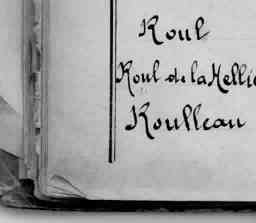 Roul
Roul de la Hellie
Roulleau